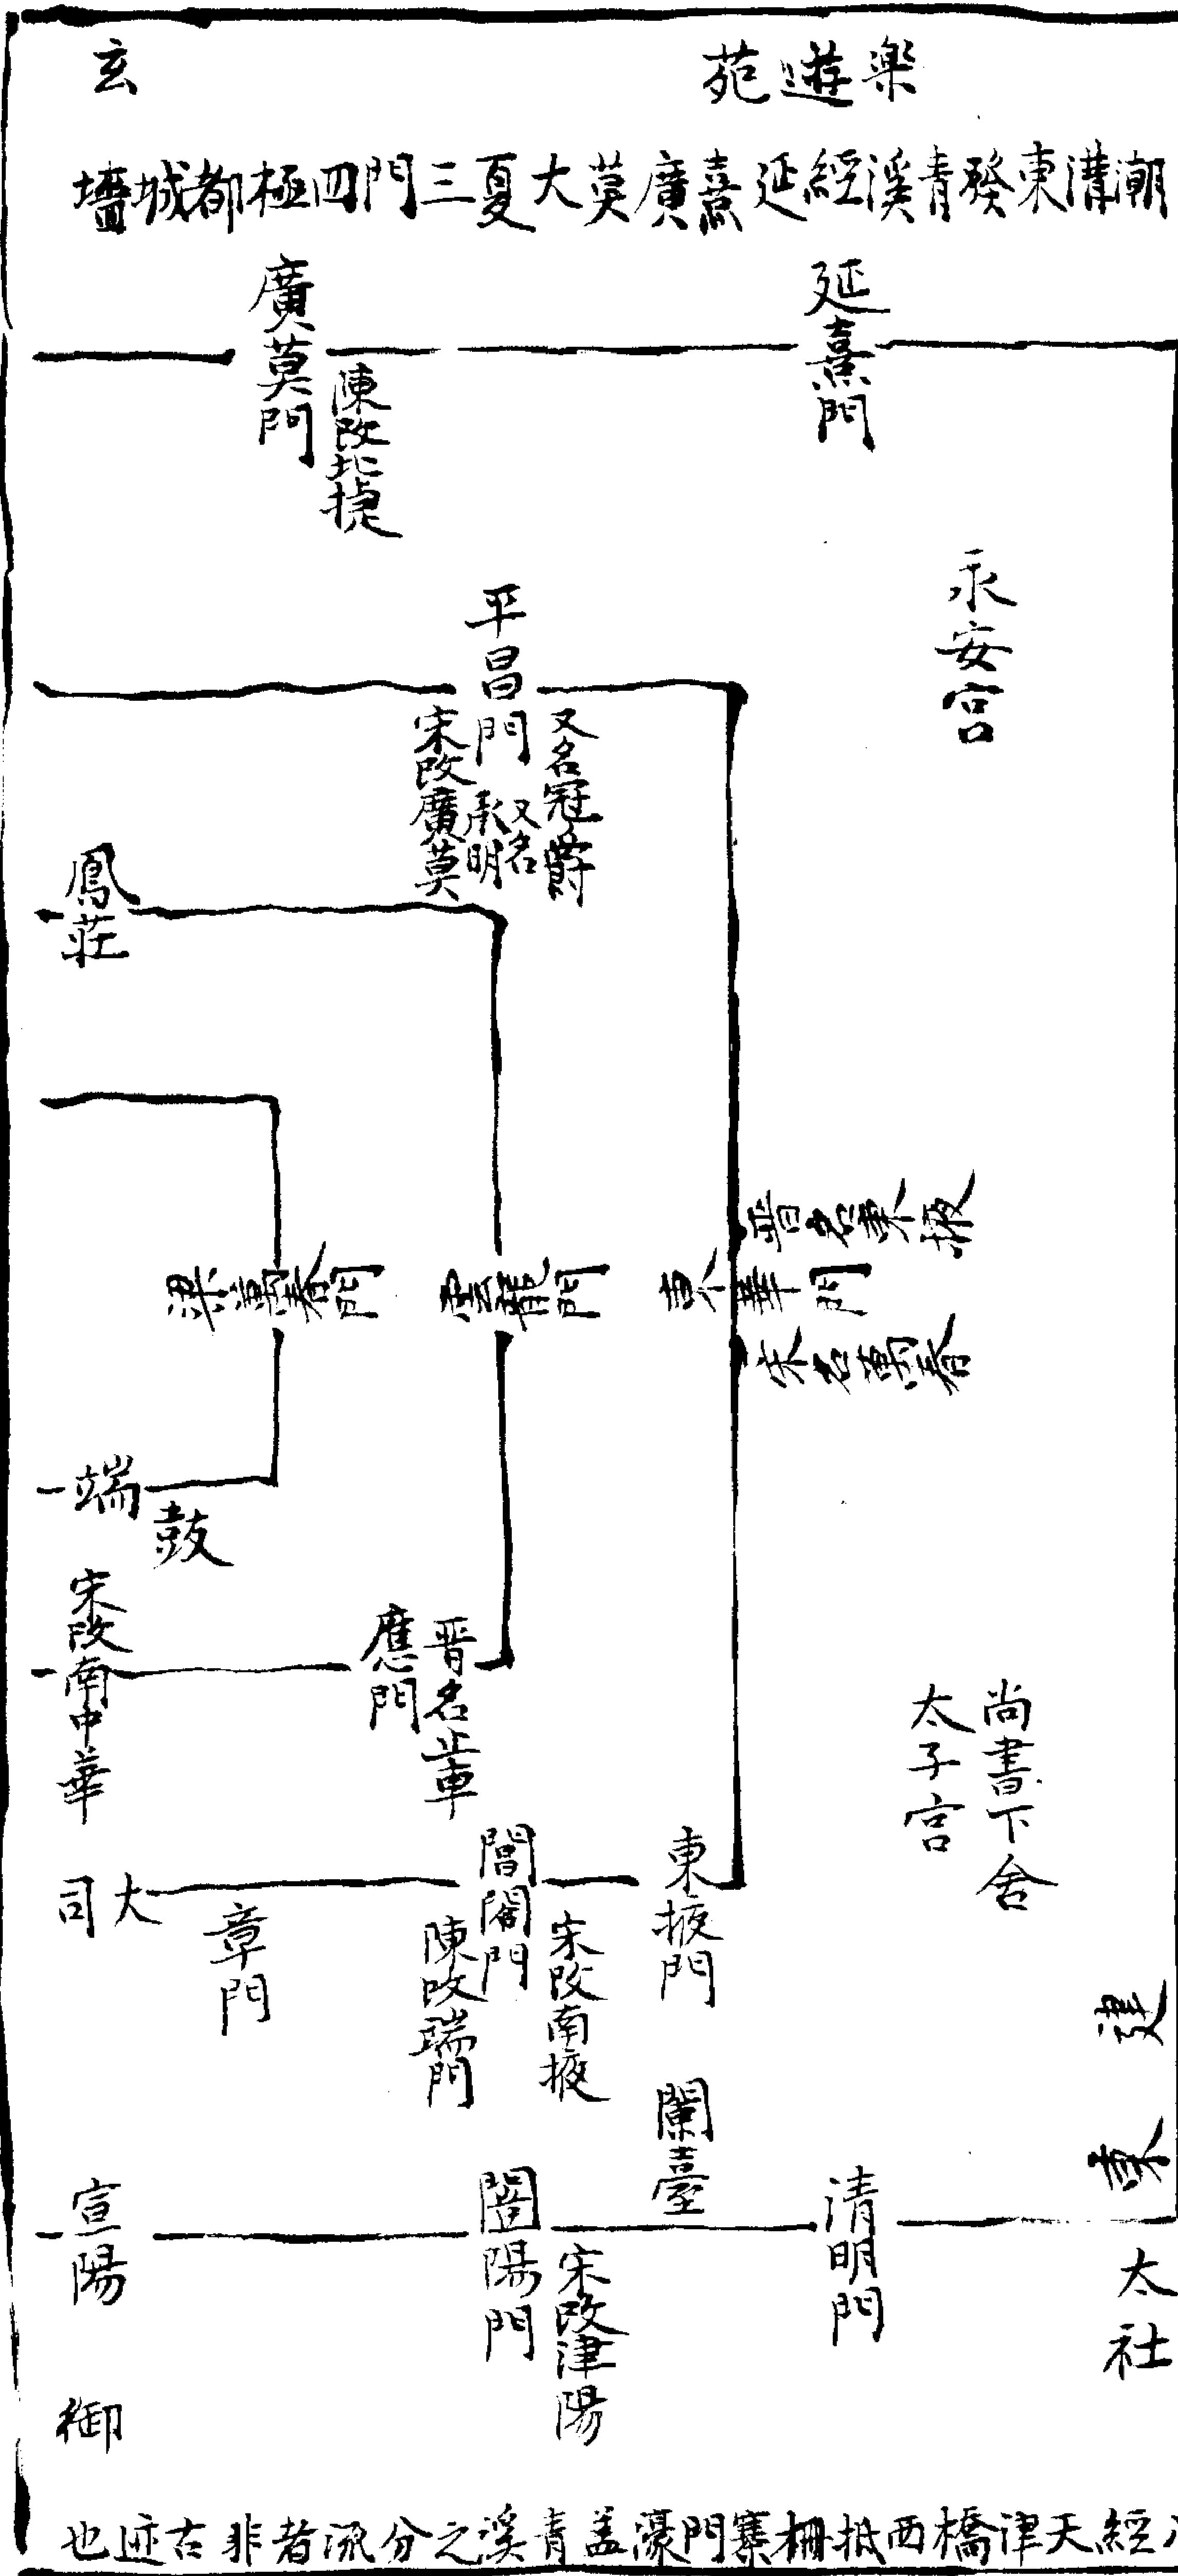 樂遊苑
玄
潮溝東發青溪經延熹廣莫大夏三門四極都城墻
延熹門
廣莫門
陳改北捷
永安宮
平昌門
又名冠爵
又名承明
宋改廣莫
鳳莊
晉名東掖
東華門
宋名萬春
雲龍門
梁萬春門
端
鼓
宋改南中華
晉名止車
應門
尚書下舍
太子宮
東掖門
閶闔門
宋改南掖
陳改端門
章門
大司
建
東
蘭臺
清明門
開陽門
宋改津陽
宣陽
太社
御
經天津橋西抵柵寨門濠蓋青溪之分流者非古迹也